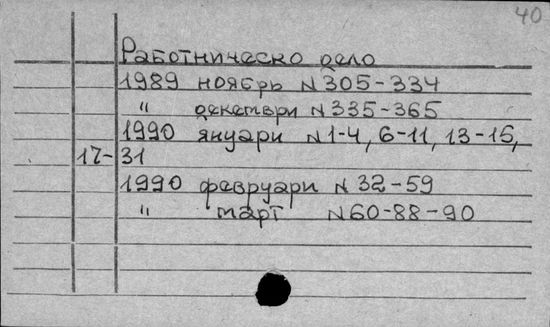 40
Работническо дело
1989 ноябрь N 305-334
" декември N 335-365
1990 януари N 1-4, 6-11, 13-15,
17-31
1990 февруари N 32-59
" март N 60-88-90